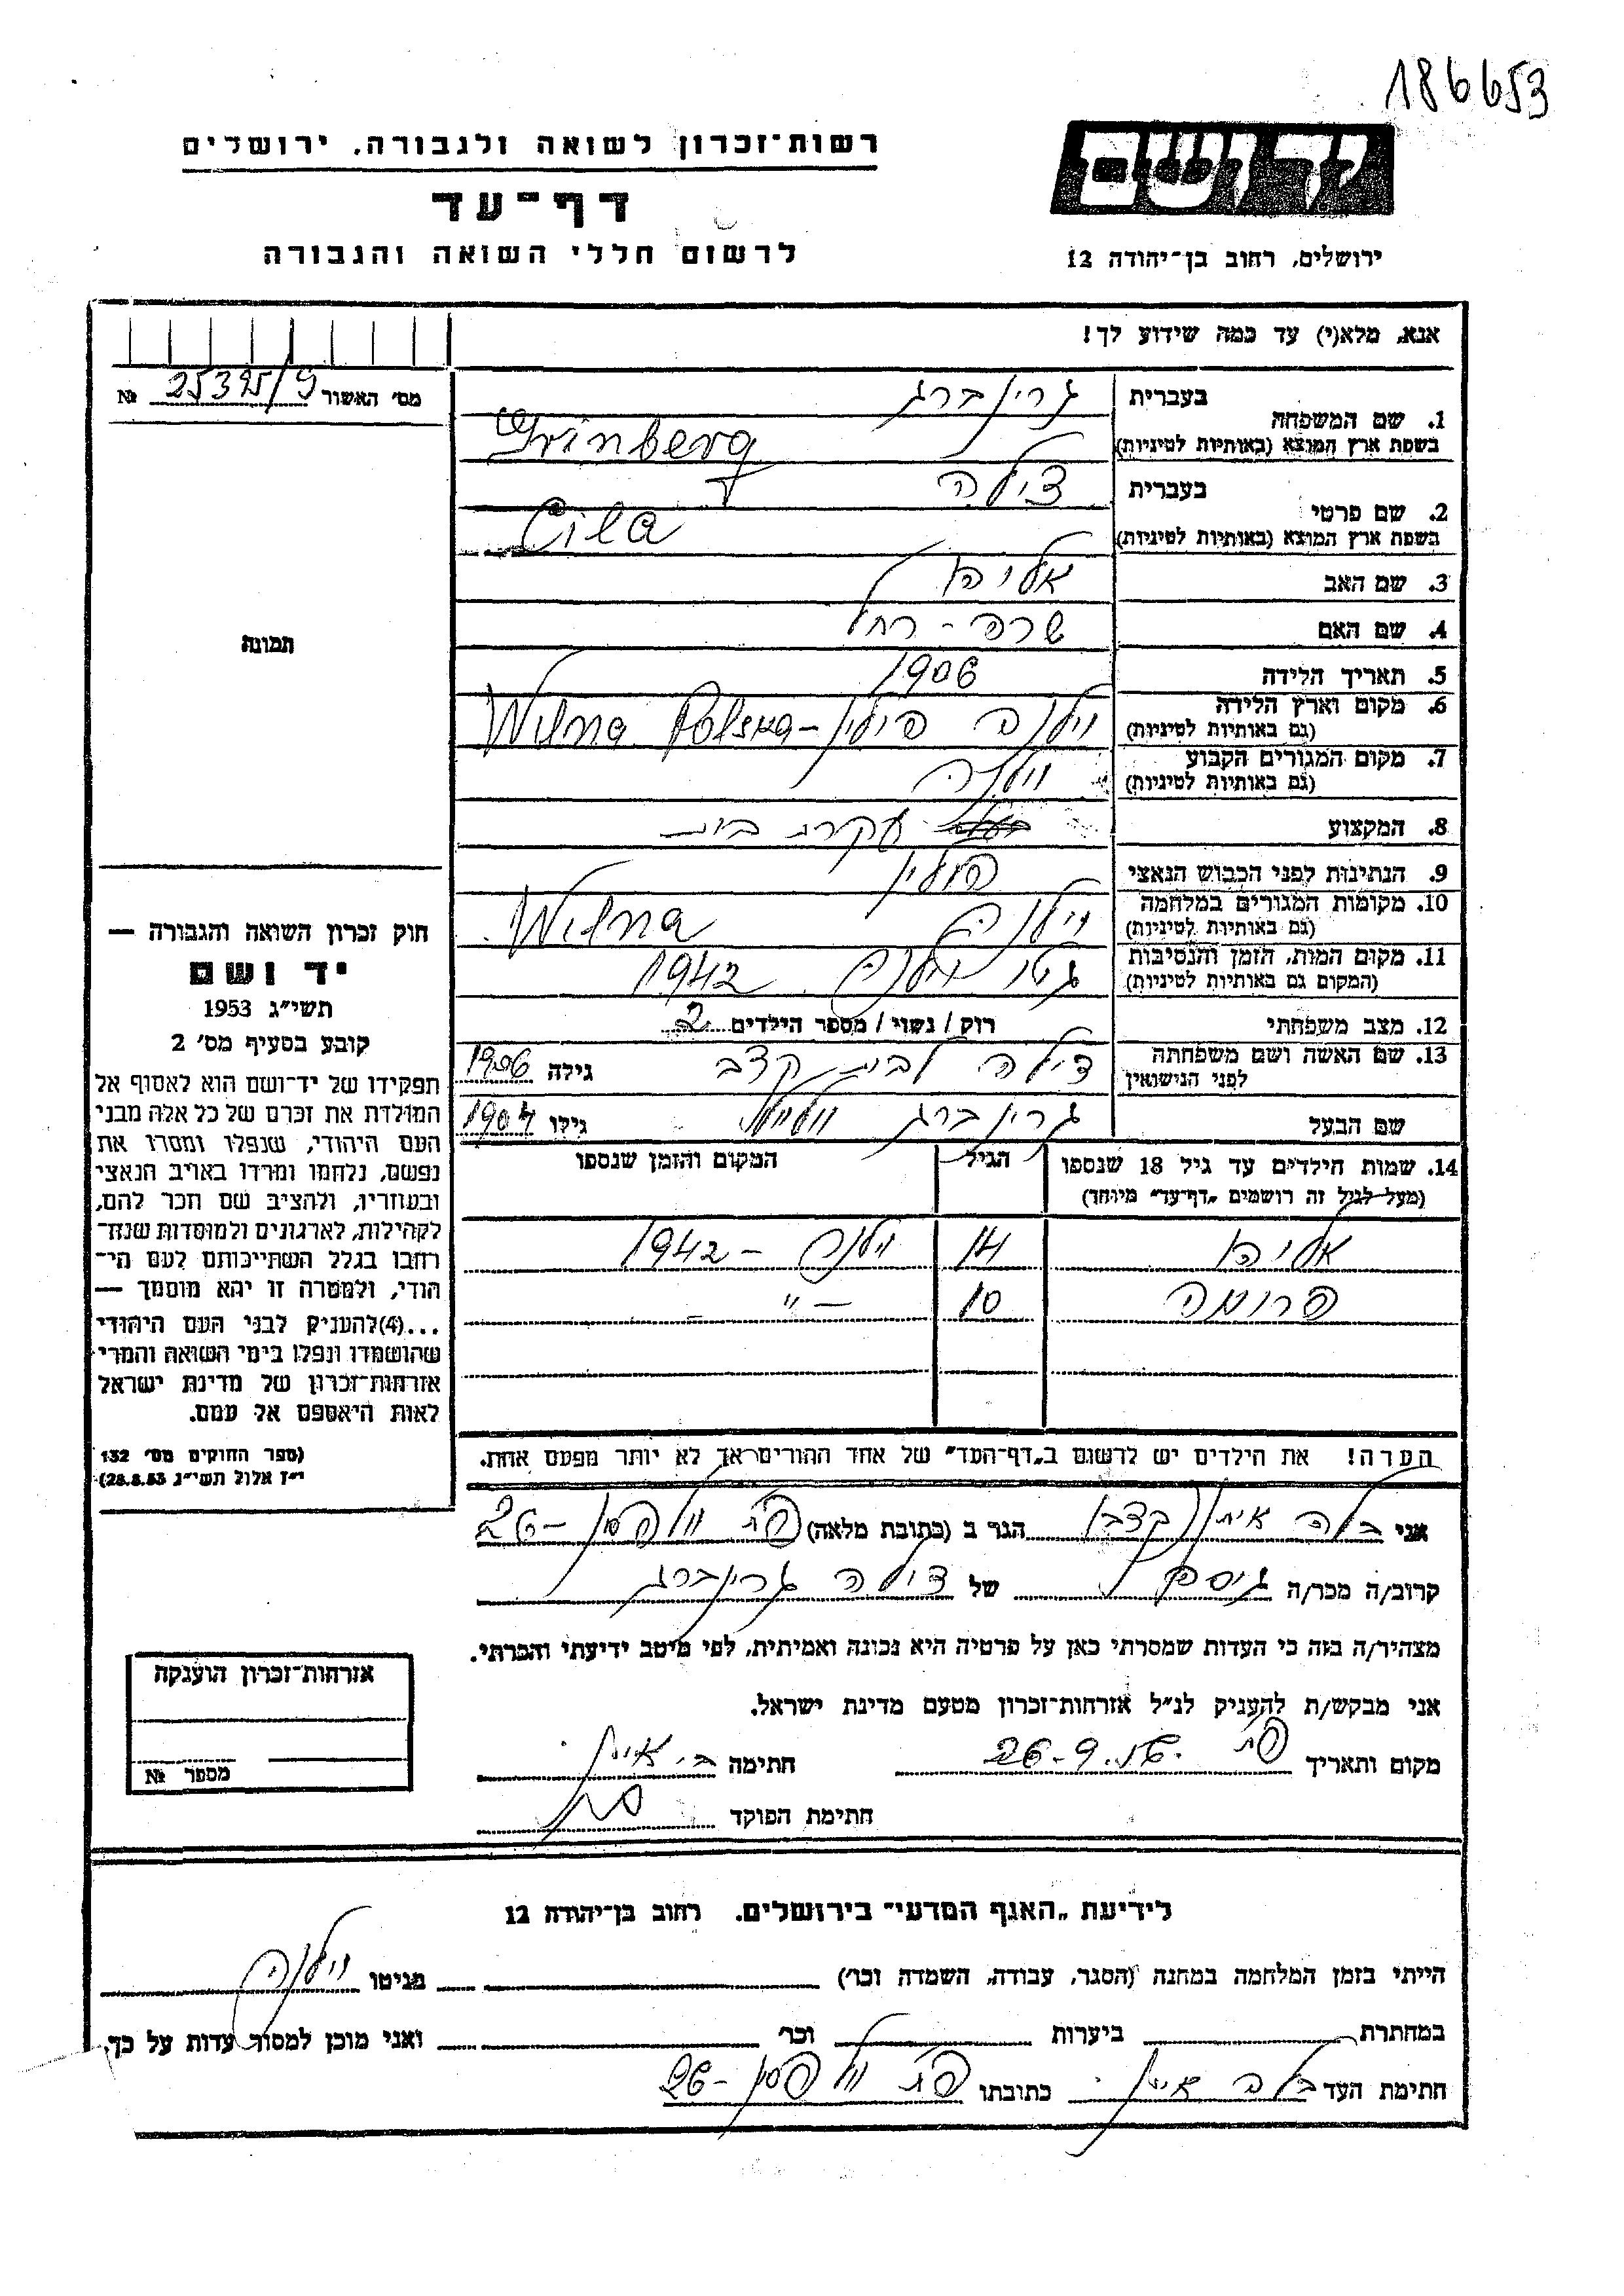 186653
רשות־זכרון לשואה ולגבורה, ירושלים
דף־עד
לרשום חללי השואה והגבורה
יד ושם
ירושלים, רחוב בן־יהודה 12
אנא, מלא(י) עד כמה שידוע לך!
מס׳ האשור 25395/9 №
תמונה
1. שם המשפחה
בעברית גרינברג
בשפת ארץ המוצא (באותיות לטיניות) Grinberg
2. שם פרטי
בעברית צילה
בשפת ארץ המוצא (באותיות לטיניות) Cila
3. שם האב אליהו
4. שם האם שרה - רחל
5. תאריך הלידה 1906
6. מקום וארץ הלידה
(גם באותיות לטיניות) וילנה פולין - Wilna Polska
7. מקום המגורים הקבוע
(גם באותיות לטיניות) וילנה
8. המקצוע עקרת בית
9. הנתינות לפני הכבוש הנאצי פולין
10. מקומות המגורים במלחמה
(גם באותיות לטיניות) וילנה Wilna
11. מקום המות, הזמן והנסיבות
(המקום גם באותיות לטיניות) גטו וילנה 1942
12. מצב משפחתי רוק / נשוי / מספר הילדים 2
13. שם האשה ושם משפחתה
לפני הנישואין צילה לבית קצב גילה 1906
שם הבעל גרינברג גילו 1904
14. שמות הילדים עד גיל 18 שנספו הגיל המקום והזמן שנספו
(מעל לגיל זה רושמים „דף־עד״ מיוחד)
אליהו 14 וילנה - 1942
פרומה 10 - " -
הערה! את הילדים יש לרשום ב„דף־העד״ של אחד ההורים אך לא יותר מפעם אחת.
חוק זכרון השואה והגבורה —
יד ושם
תשי״ג 1953
קובע בסעיף מס׳ 2
תפקידו של יד־ושם הוא לאסוף אל
המולדת את זכרם של כל אלה מבני
העם היהודי, שנפלו ומסרו את
נפשם, נלחמו ומרדו באויב הנאצי
ובעוזריו, ולהציב שם וזכר להם,
לקהילות, לארגונים ולמוסדות שנח־
רבו בגלל השתייכותם לעם הי־
הודי, ולמטרה זו יהא מוסמך —
...(4) להעניק לבני העם היהודי
שהושמדו ונפלו בימי השואה והמרי
אזרחות־זכרון של מדינת ישראל
לאות היאספם אל עמם.
(ספר החוקים מס׳ 132
י״ז אלול תשי״ג 28.8.53)
אני בלה איתן (קצב) הגר ב (כתובת מלאה) פ״ת וולפסון - 26
קרוב/ה מכר/ה גיסתן של צילה גרינברג
מצהיר/ה בזה כי העדות שמסרתי כאן על פרטיה היא נכונה ואמיתית, לפי מיטב ידיעתי והכרתי.
אני מבקש/ת להעניק לנ״ל אזרחות־זכרון מטעם מדינת ישראל.
מקום ותאריך פ״ת 26-9-56 חתימה ב. איתן
חתימת הפוקד
אזרחות־זכרון הוענקה
מספר №
לידיעת „האגף המדעי״ בירושלים, רחוב בן־יהודה 12
הייתי בזמן המלחמה במחנה (הסגר, עבודה, השמדה וכו׳) מגיטו וילנה
במחתרת ביערות וכו׳ ואני מוכן למסור עדות על כך.
חתימת העד בלה איתן כתובתו פ״ת וולפסון - 26